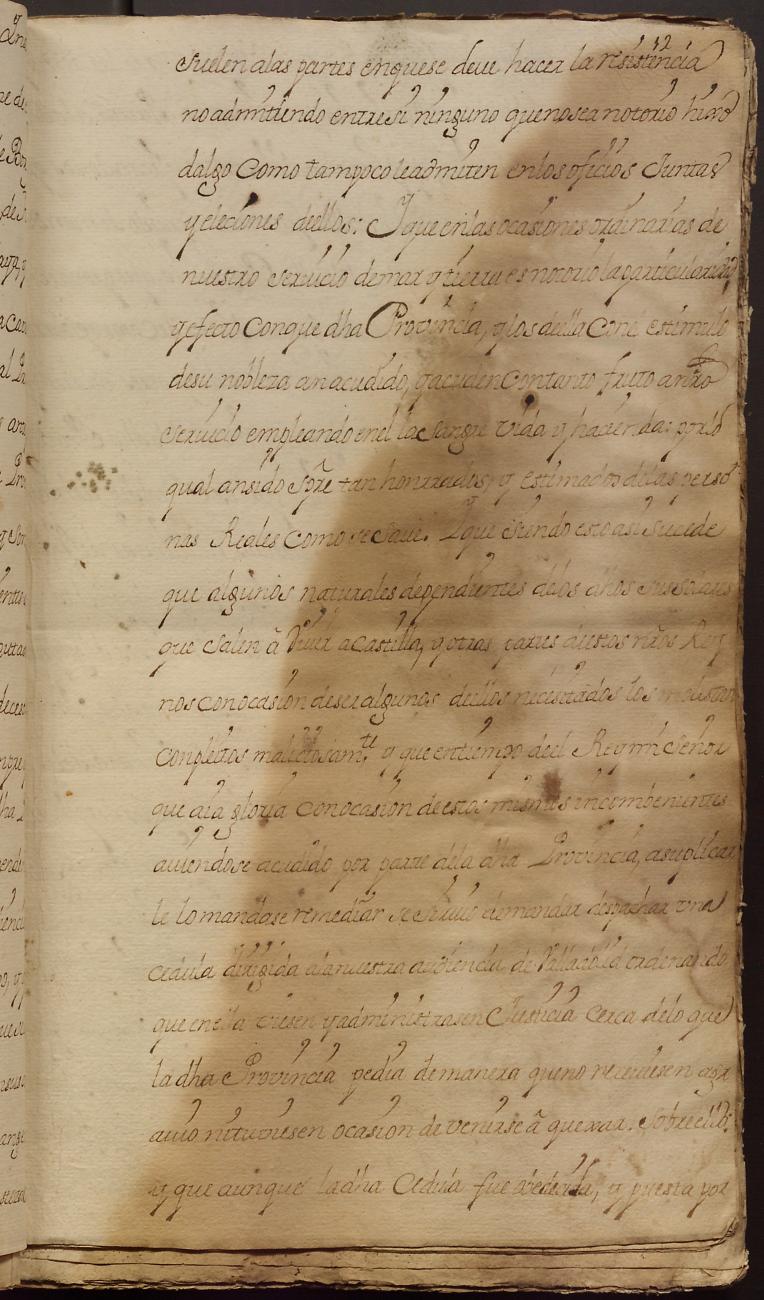 suelen a las partes en que se deue hacer la resistencia
no admitiendo entre si ninguno que no sea notorio hixo
dalgo Como tampoco le admiten en los oficios Juntas
y eleciones dellos: I que en las ocasiones ordinarias de
nuestro seruicio de mar y tierra es notorio la particularidad
y efecto Con que dha Prouincia, y los della Con el estimulo
de su nobleza an acudido, y acuden Con tanto fruto a nro
seruicio empleando en el la sangre vida y haziendas por lo
qual an sido spre tan honrrados, y estimados de las perso
nas Reales Como se saue. I que siendo esto asi sucede
que algunos naturales dependientes de los dhos sus solares
que salen â viuir a Castilla, y otras partes destos nros Rey
nos con ocasion de ser algunos dellos necesitados los molestan
con pleitos maliciosamte. y que en tiempo del Rey mi señor
que aia gloria con ocasion de estos mismos incombenientes
auiendose acudido por parte de la dha Prouincia, a suplicar
le lo mandase remediar se siruio de mandar despachar vna
cedula dirigida a la nuestra audiencia de Valladolid ordenando
que en ella viesen y administrasen Justicia cerca de lo que
la dha Prouincia pedia de manera que no reciuiesen agr
auio ni tuuiesen ocasion de venirse â quexar. sobre ello,
y que aunque la dha Cedula fue obedecida, y puesta por